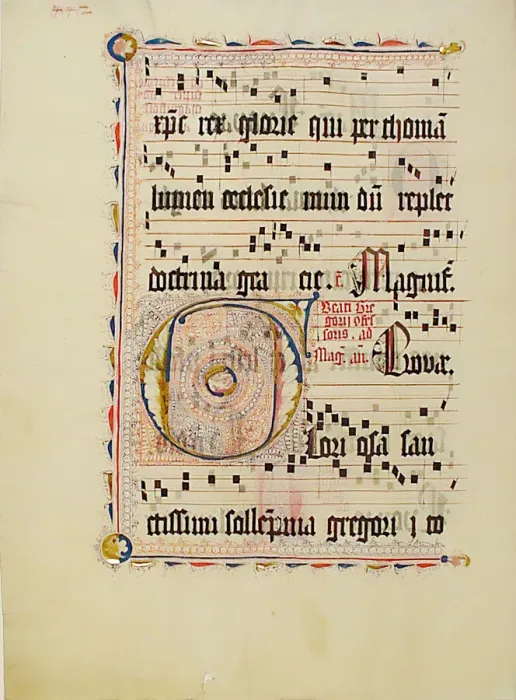 xp̄e rex glorie qui per thomā
lumen ecclesie mundū replet
doctrina gracie. Magnif.
Beati Gre
gorij cōfes
soris. ad
Mag. an.
Evovae.
Glori osa san
ctissimi sollēpnia gregorij